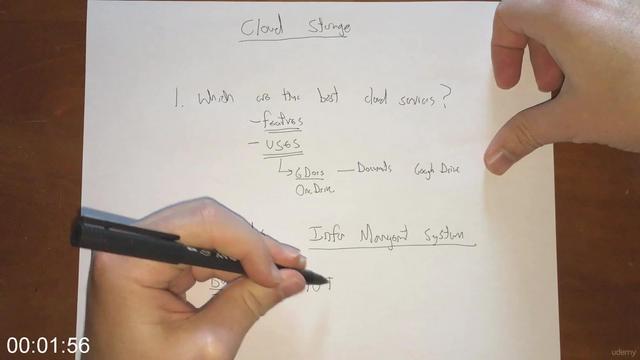 Cloud Storage
1. Which are the best cloud services?
- features
- uses
GDocs — Google Drive
OneDrive
Info Mangment System
00:01:56
udemy